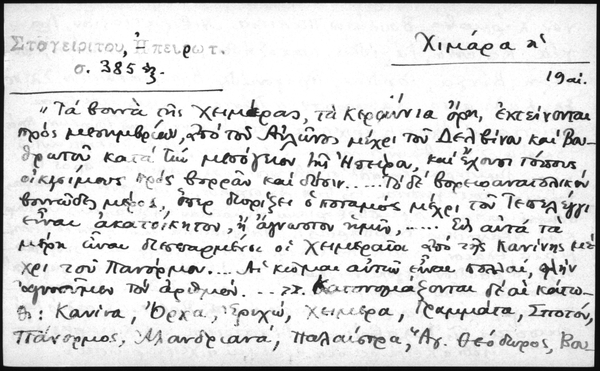 Σταγειρίτου, Ἠπειρωτ.
σ. 385 ἑξ.
Χιμάρα
19 αἰ.
"Τά βουνά τῆς Χειμέρας, τά Κεραύνια ὄρη, ἐκτείνονται
πρός μεσημβρίαν, ἀπό τοῦ Αὐλῶνος μέχρι τοῦ Δελβίνου καί Βου-
θρωτοῦ κατά τήν μεσόγειον τῆς Ἠπείρου, καί ἔχουσι τόπους
οἰκησίμους πρός βορρᾶν καί δύσιν..... Τό δέ βορειοανατολικόν
βουνῶδες μέρος, ὅπερ διορίζει ὁ ποταμός μέχρι τοῦ Τεπελένγι
εἶναι ἀκατοίκητον, ἤ ἄγνωστον ἡμῖν,..... Εἰς αὐτά τά
μέρη εἶναι διεσπαρμένοι οἱ Χειμεραῖοι ἀπό τῆς Κανίνης μέ-
χρι τοῦ Πανόρμου.... Αἱ κῶμαι αὐτῶν εἶναι πολλαί, πλήν
ἀγνοοῦμεν τόν ἀριθμόν. ... Κατονομάζονται δέ αἱ κάτω-
θι: Κανίνα, Ὄρχα, Δριχώ, Χειμέρα, Γράμματα, Σποτόν,
Πάνορμος, Ἀλανδριανά, Παλαίστρα, Ἅγ. Θεόδωρος, Βου-